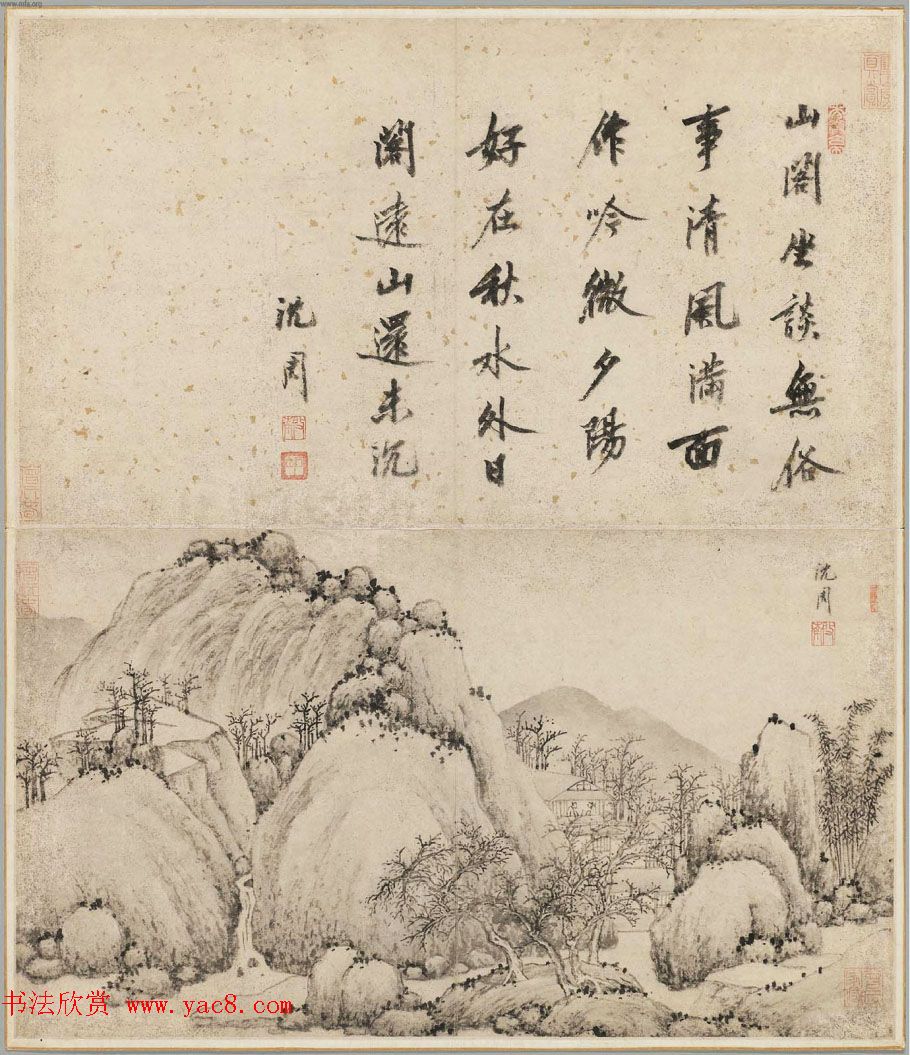 www.mfa.org
山閣坐談無俗
事清風滿面
作吟微夕陽
好在秋水外日
閣遠山還未沉
沈周
沈周
书法欣赏 www.yac8.com